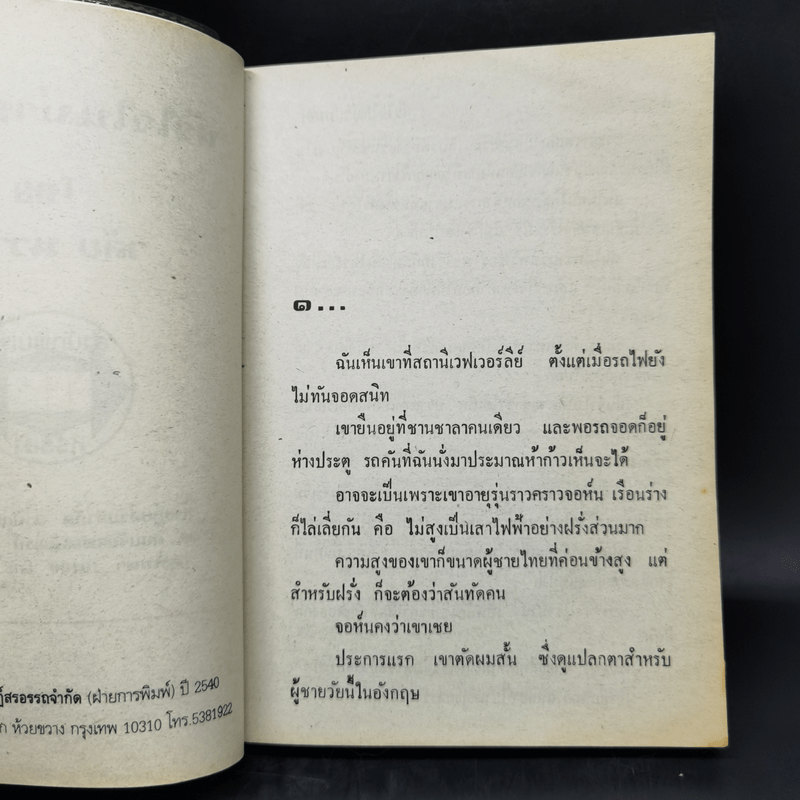 ฏ์สรอรรถจำกัด (ฝ่ายการพิมพ์) ปี 2540
ก ห้วยขวาง กรุงเทพ 10310 โทร.5381922
๑...
ฉันเห็นเขาที่สถานีเวฟเวอร์ลีย์ ตั้งแต่เมื่อรถไฟยัง
ไม่ทันจอดสนิท
เขายืนอยู่ที่ชานชาลาคนเดียว และพอรถจอดก็อยู่
ห่างประตู รถคันที่ฉันนั่งมาประมาณห้าก้าวเห็นจะได้
อาจจะเป็นเพราะเขาอายุรุ่นราวคราวจอห์น เรือนร่าง
ก็ไล่เลี่ยกัน คือ ไม่สูงเป็นเสาไฟฟ้าอย่างฝรั่งส่วนมาก
ความสูงของเขาก็ขนาดผู้ชายไทยที่ค่อนข้างสูง แต่
สำหรับฝรั่ง ก็จะต้องว่าสันทัดคน
จอห์นคงว่าเขาเชย
ประการแรก เขาตัดผมสั้น ซึ่งดูแปลกตาสำหรับ
ผู้ชายวัยนี้ในอังกฤษ